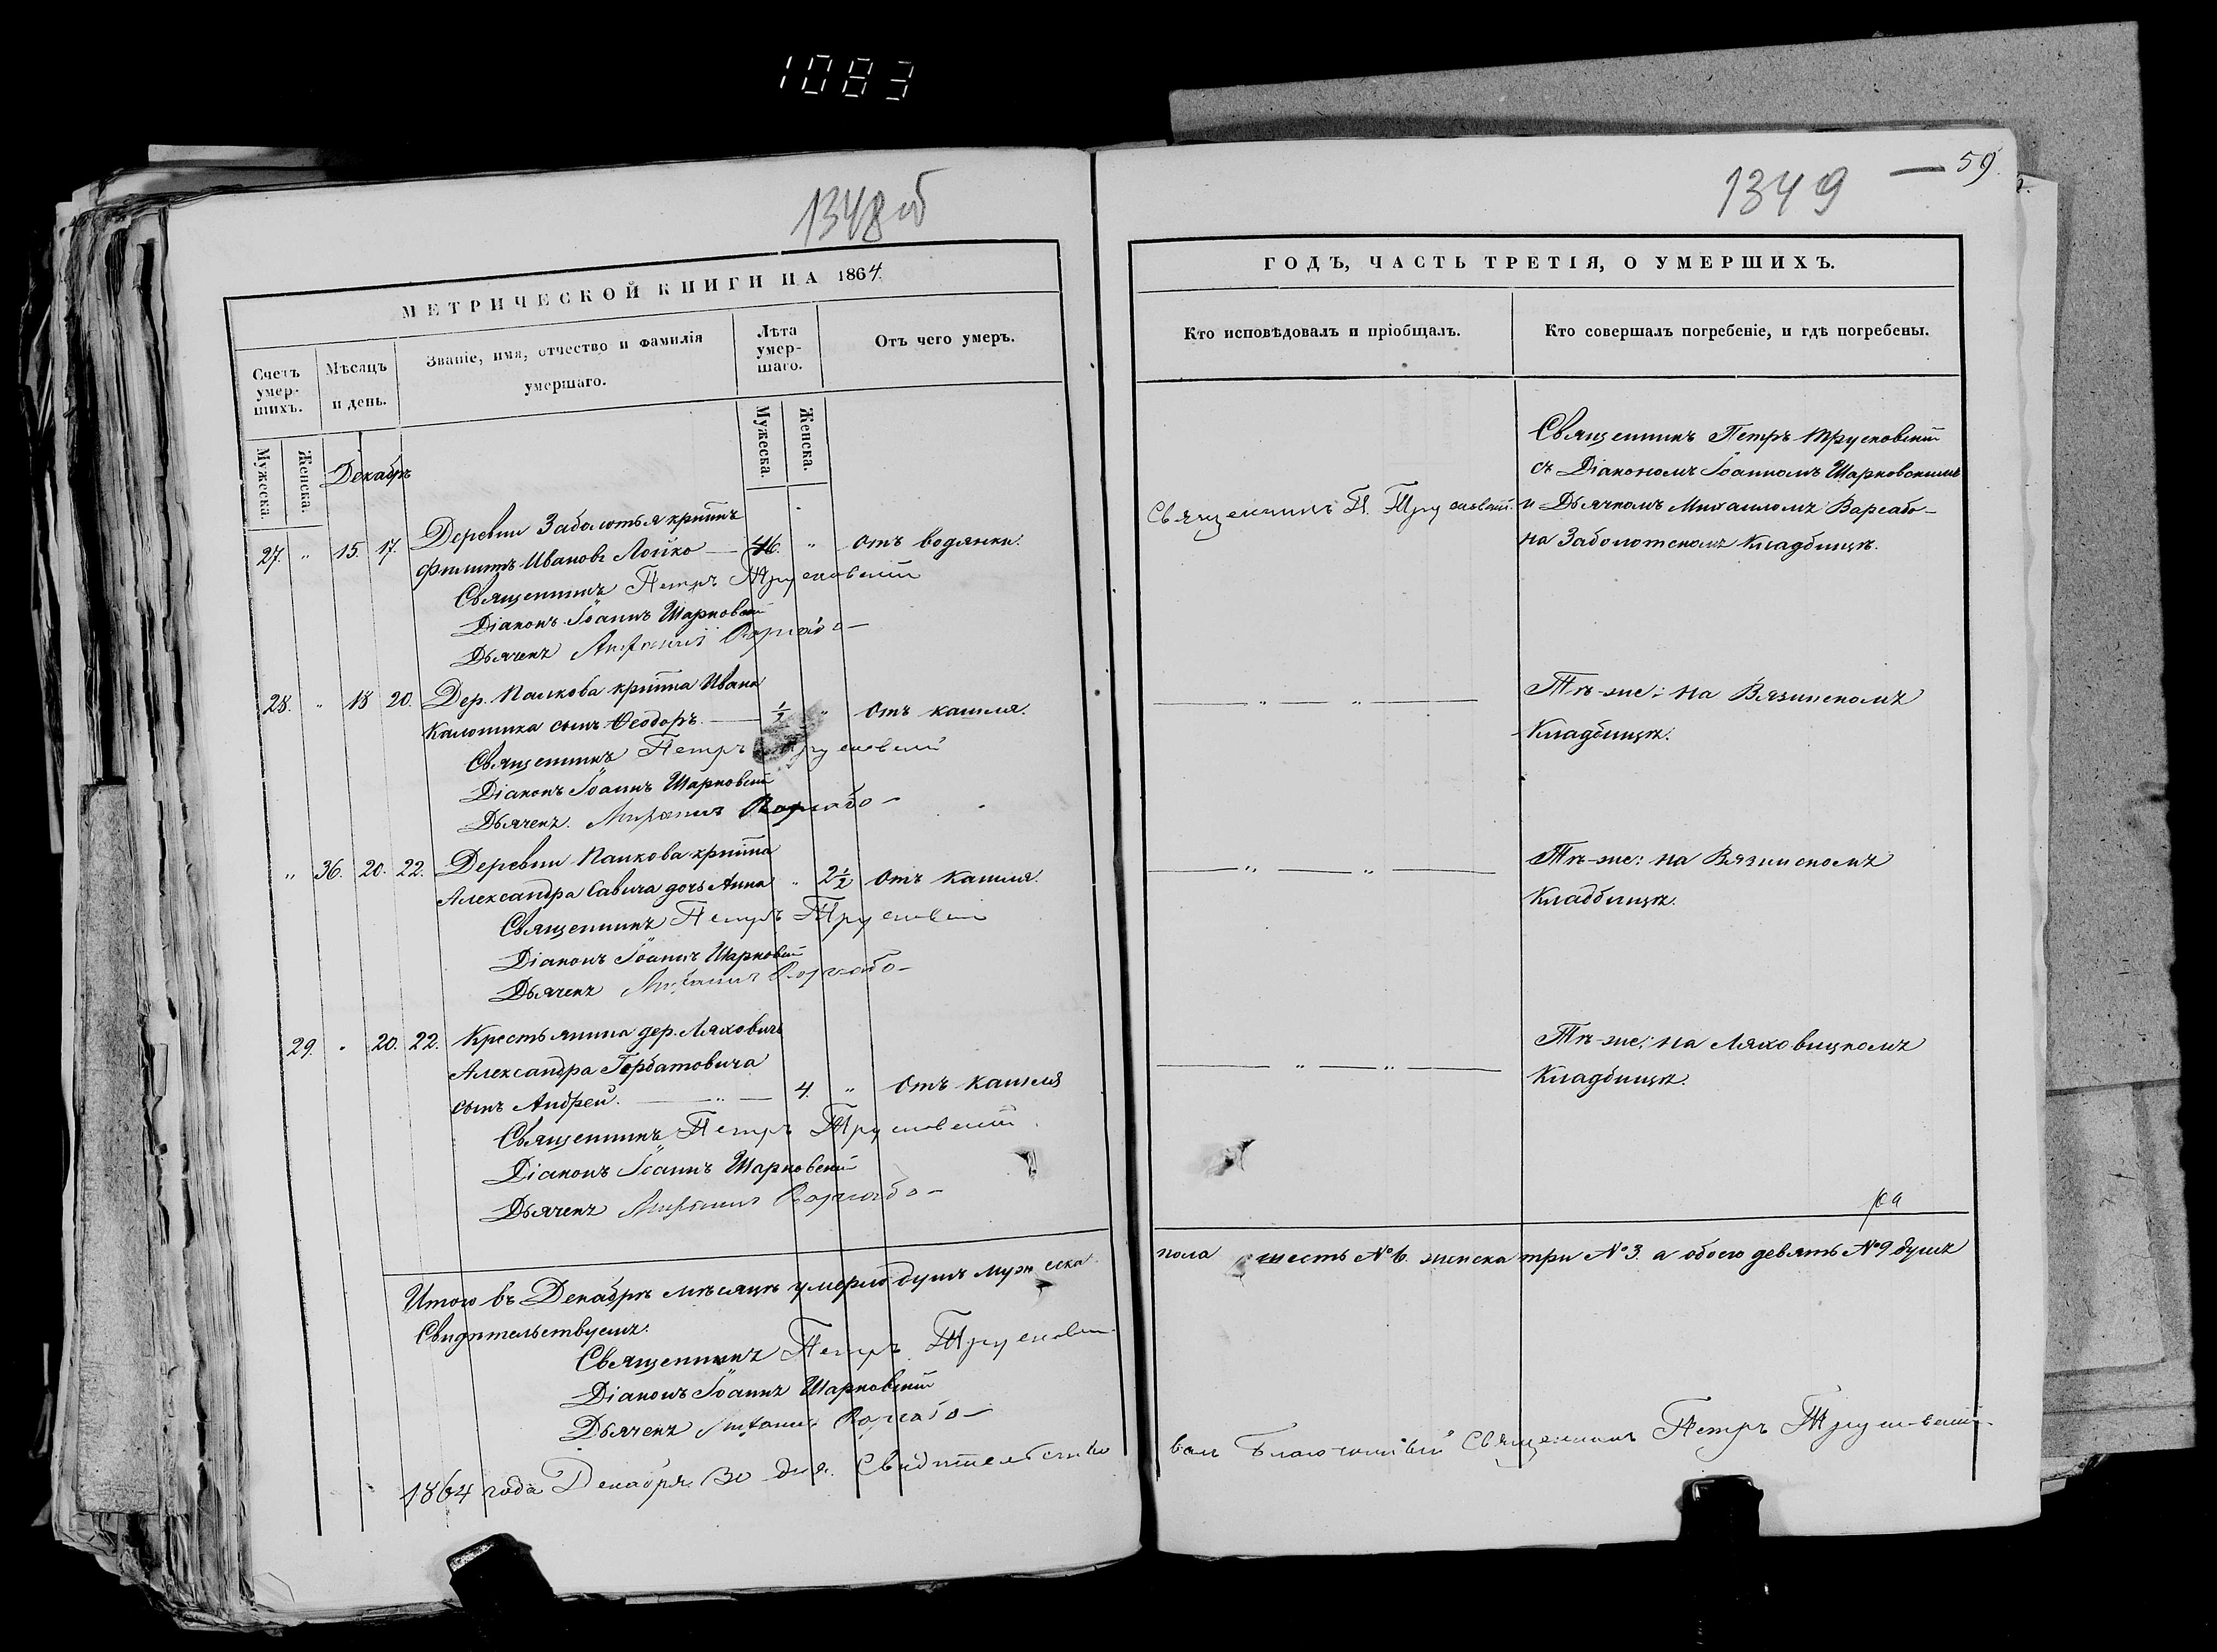 1083
1348об
МЕТРИЧЕСКОЙ КНИГИ НА 1864.
Счетъ умер-шихъ.
Мѣсяцъ и день.
Званіе, имя, отчество и фамилія умершаго.
Лѣта умер-шаго.
Отъ чего умеръ.
Мужеска.
Женска.
Мужеска.
Женска.
Декабрь
27. " 15. 17. Деревни Заболотья крттнъ
Филиппъ Ивановъ Лойко — 46. " отъ водянки.
Священникъ Петръ Трусковскій
Діаконъ Іоаннъ Шарковскій
Дьячекъ Варсабо
28. " 18 20. Дер. Палкова крттна Ивана
сынъ Ѳеодоръ. — ½ " отъ кашля.
Священникъ Петръ Трусковскій
Діаконъ Іоаннъ Шарковскій
Дьячекъ. Михаилъ Варсабо
" 36. 20. 22. Деревни Палкова крттна
Александра Савича дочь Анна " 2½ отъ кашля.
Священникъ Петръ Трусковскій
Діаконъ Іоаннъ Шарковскій
Дьячекъ Михаилъ Варсабо
29. " 20. 22. Крестьянина дер. Ляховичъ
Александра Горбатовича
сынъ Андрей. — " — 4. " отъ кашля
Священникъ Петръ Трусковскій
Діаконъ Іоаннъ Шарковскій
Дьячекъ Михаилъ Варсабо
Итого въ Декабрѣ мѣсяцѣ умерло душъ мужеска
Свидѣтельствуемъ.
Священникъ Петръ Трусковскій
Діаконъ Іоаннъ Шарковскій
Дьячекъ Михаилъ Варсабо
1864 года Декабря 30 дня. Свидѣтельство
1349 — 59.
ГОДЪ, ЧАСТЬ ТРЕТІЯ, О УМЕРШИХЪ.
Кто исповѣдовалъ и пріобщалъ.
Кто совершалъ погребеніе, и гдѣ погребены.
Священникъ П. Трусковскій.
Священникъ Петръ Трусковскій
съ Діакономъ Іоанномъ Шарковскимъ
и Дьячкомъ Михаиломъ Варсабо
на Заболотскомъ Кладбищѣ.
— " — " —
Тѣ-же: на Вязинскомъ
Кладбищѣ.
— " — " —
Тѣ-же: на Вязинскомъ
Кладбищѣ.
— " — " —
Тѣ-же: на Ляховицкомъ
Кладбищѣ.
пола шесть № 6. женска три № 3. а обоего девять № 9 душъ
валъ Благочинный Священникъ Петръ Трусковскій